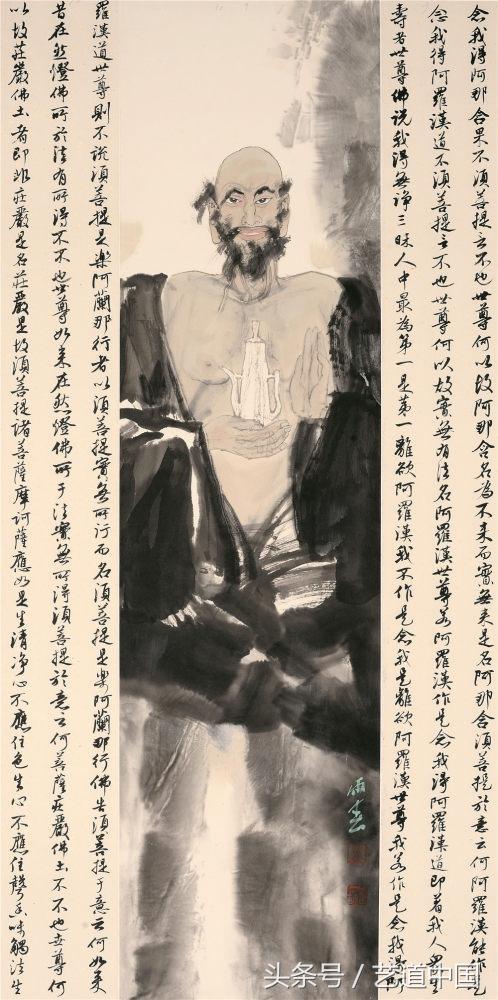 念我得阿那含果不須菩提言不也世尊何以故阿那含名為不來而實無來是名阿那含須菩提於意云何阿羅漢能作是
念我得阿羅漢道不須菩提言不也世尊何以故實無有法名阿羅漢世尊若阿羅漢作是念我得阿羅漢道即著我人眾生
壽者世尊佛說我得無諍三昧人中最為第一是第一離欲阿羅漢我不作是念我是離欲阿羅漢世尊我若作是念我得阿
羅漢道世尊則不說須菩提是樂阿蘭那行者以須菩提實無所行而名須菩提是樂阿蘭那行佛告須菩提于意云何如來
昔在然燈佛所於法有所得不不也世尊如來在然燈佛所于法實無所得須菩提於意云何菩薩莊嚴佛土不不也世尊何
以故莊嚴佛土者即非莊嚴是名莊嚴是故須菩提諸菩薩摩訶薩應如是生清淨心不應住色生心不應住聲香味觸法生
头条号 / 艺道中国